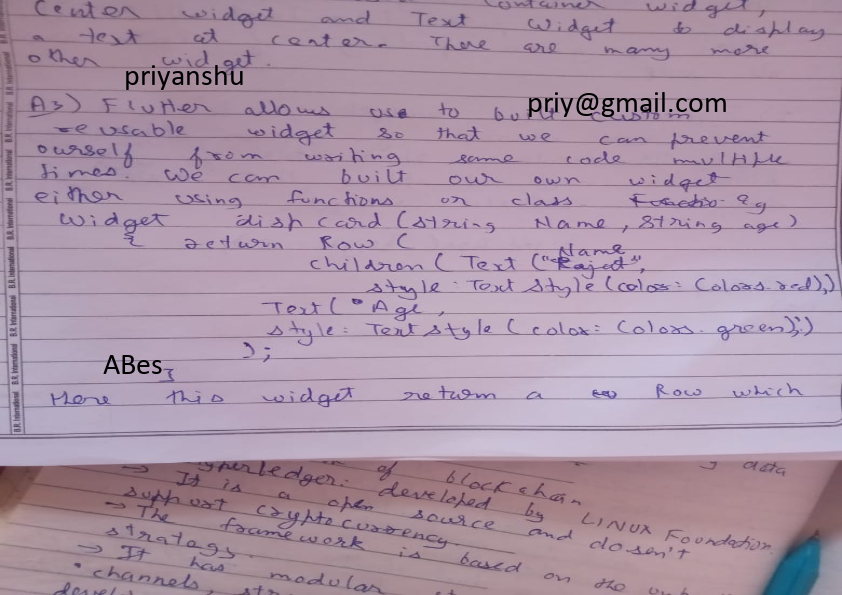 Container widget,
Center widget and Text Widget to display
a text at center. There are many more
other widget.
priyanshu
priy@gmail.com
A3) Flutter allows use to built custom
reusable widget so that we can prevent
ourself from writing same code multiple
times. We can built our own widget
either using functions or class Functio Eg
Widget dish card (string Name, string age)
{ return Row (
Name
children ( Text ("Rajat",
style: Text Style (color: Colors.red),)
Text ( Age,
style: Text style ( color: Colors. green);)
);
ABes
}
Here this widget return a Row which
B.R. International B.R. International B.R. International B.R. International B.R. International
data
of blockchain
hyperledger. developed by LINUX Foundation
→ It is a open source and dosen't
support cryptocurrency.
→ The framework is based on the
stratagy.
→ It has modular
• channels,